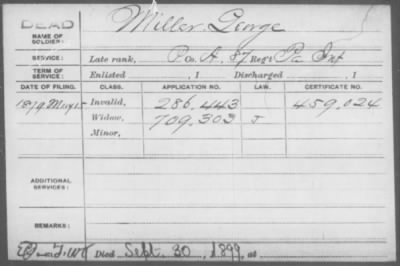 DEAD
Miller, George
NAME OF
SOLDIER:
SERVICE:
Late rank, P Co. A, 87 Reg't Pa Inf
TERM OF
SERVICE:
Enlisted , 1 Discharged , 1
DATE OF FILING. CLASS. APPLICATION NO. LAW. CERTIFICATE NO.
1879 May 12 Invalid, 286.443 459.024
Widow, 709.303 J
Minor,
ADDITIONAL
SERVICES:
REMARKS:
Died Sept. 30, 1899, at